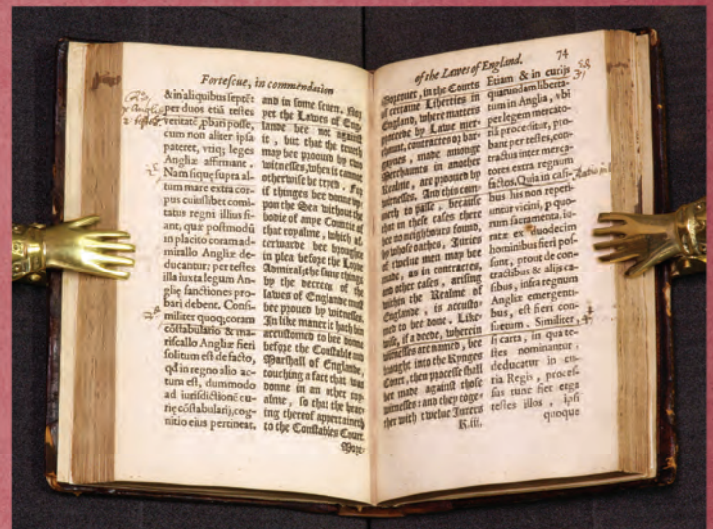 Fortescue, in commendation
& in aliquibus septē
per duos etiā testes
veritatē ꝓbari posse,
cum non aliter ipsa
pateret, vtiq; leges
Angliæ affirmant.
Nam siquę supra al-
tum mare extra cor-
pus cuiuslibet comi-
tatus regni illius fi-
ant, quæ postmodū
in placito coram ad-
mirallo Angliæ de-
ducantur: per testes
illa iuxta legum An-
glię sanctiones pro-
bari debent. Consi-
militer quoq; coram
cōstabulario & ma-
riscallo Angliæ fieri
solitum est de facto,
qđ in regno alio ac-
tum est, dummodo
ad iurisdictionē cu-
rię cōstabularij, cog-
nitio eius pertineat.
and in some seuen. Nor
yet the Lawes of Eng-
lande bee not against
it, but that the trueth
may bee prooued by two
witnesses, when it cannot
otherwise be tryed. For
if thinges bee donne vp-
pon the Sea without the
bodie of anye Countie of
that royalme, which af-
terwarde bee brought
in plea before the Lorde
Admiral: the same things
by the decrees of the
lawes of Englande must
bee prooued by witnesses.
In like maner it hath bin
accustomed to bee donne
before the Constable and
Marshall of England,
touching a fact that was
donne in an other roy-
alme, so that the hear-
ing thereof appertaineth
to the Constables Court.
More-
of the Lawes of England. 74
Moreouer, in the Courts
of certaine Liberties in
England, where matters
proceede by Lawe mer-
chaunt, contractes or bar-
gaynes, made amonge
Merchaunts in another
Realme, are prooued by
witnesses. And this com-
meth to passe, because
that in these cases there
bee no neighbours found,
by whose oathes, Juries
of twelue men may bee
made, as in contractes,
and other cases, arising
within the Realme of
Englande, is accusto-
med to bee done. Like-
wise, if a deede, wherein
witnesses are named, bee
brought into the Kynges
Court, then processe shall
bee made against those
witnesses: and they toge-
ther with twelue Jurers
R.iii.
Etiam & in curijs
quarundam liberta-
tum in Anglia, vbi
per legem mercato-
riā proceditur, pro-
bant per testes, con-
tractus inter merca-
tores extra regnum
factos. Quia in casi-
bus his non reperi-
untur vicini, p quo-
rum sacramenta, iu-
ratæ ex duodecim
hominibus fieri pos-
sunt, prout de con-
tractibus & alijs ca-
sibus, infra regnum
Angliæ emergenti-
bus, est fieri con-
suetum. Similiter,
si carta, in qua te-
stes nominantur,
deducatur in cu-
ria Regis, proces-
sus tunc fiet erga
testes illos, ipsi
quoque